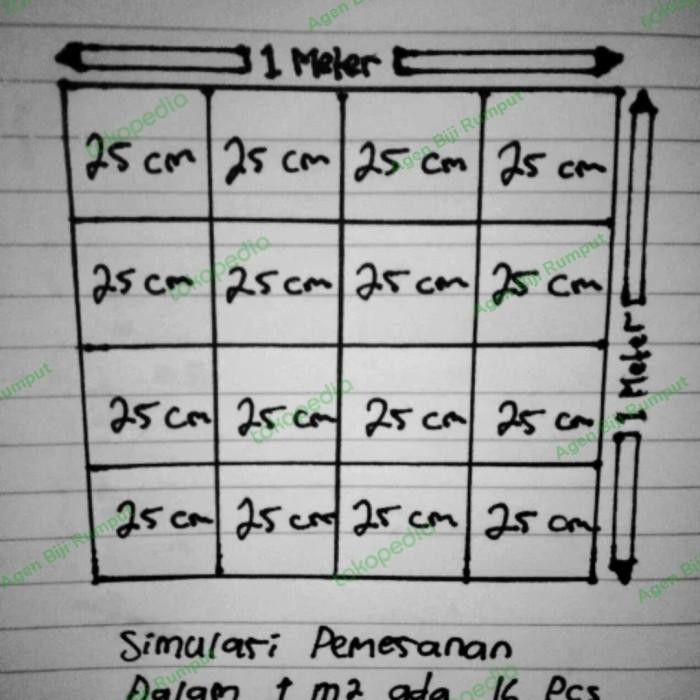 1 Meter
25 cm 25 cm 25 cm 25 cm
25 cm 25 cm 25 cm 25 cm
25 cm 25 cm 25 cm 25 cm
25 cm 25 cm 25 cm 25 cm
1 Meter
Simulasi Pemesanan
Dalam 1 m2 ada 16 Pcs
tokopedia
Agen Biji Rumput